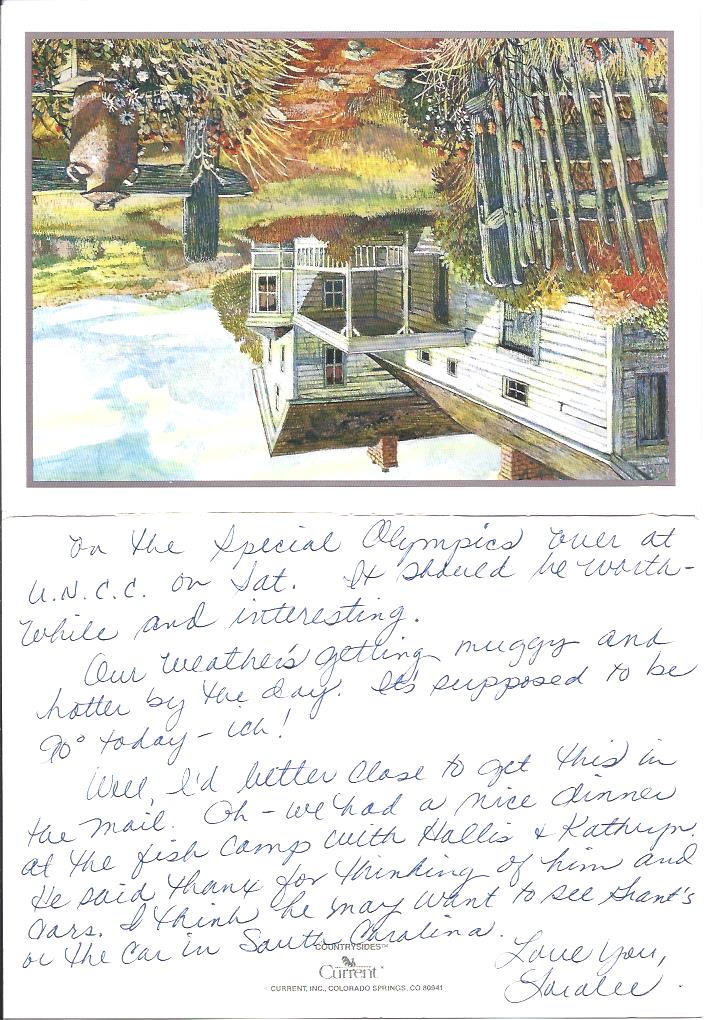 on the Special Olympics over at
U.N.C.C. on Sat. It should be worth-
while and interesting.
Our weather's getting muggy and
hotter by the day. It's supposed to be
90° today - ich!
Well, I'd better close to get this in
the mail. Oh - we had a nice dinner
at the fish camp with Hallis & Kathryn.
He said thanx for thinking of him and
cars. I think he may want to see Grant's
or the car in South Carolina.
Love you,
Loralee.
COUNTRYSIDES™
Current®
© CURRENT, INC., COLORADO SPRINGS, CO 80941